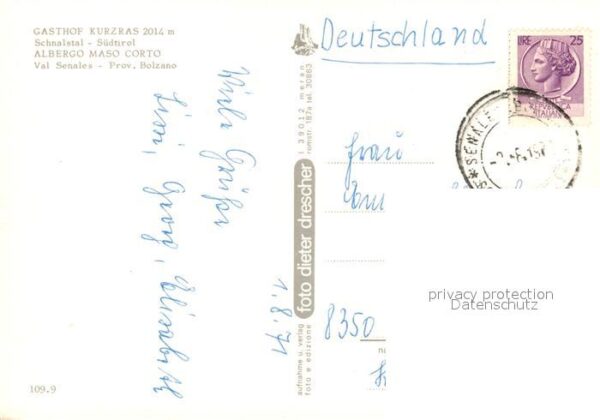 GASTHOF KURZRAS 2014 m
Schnalstal - Südtirol
ALBERGO MASO CORTO
Val Senales - Prov. Bolzano
Viele Grüße
Georg, Elisabeth
1.8.71
109.9
foto dieter drescher
I 39012 meran
romstr. 187a tel. 30863
aufnahme u. verlag
foto e edizione
Deutschland
LIRE 25
REPUBBLICA
ITALIANA
Frau
8350
privacy protection
Datenschutz